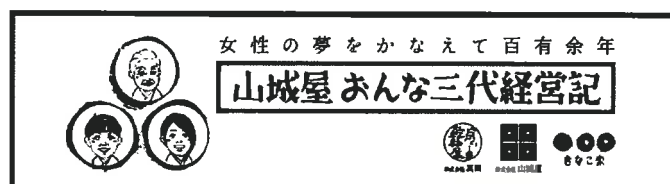 女性の夢をかなえて百有余年
山城屋おんな三代経営記
株式会社 山城屋
きなこ家